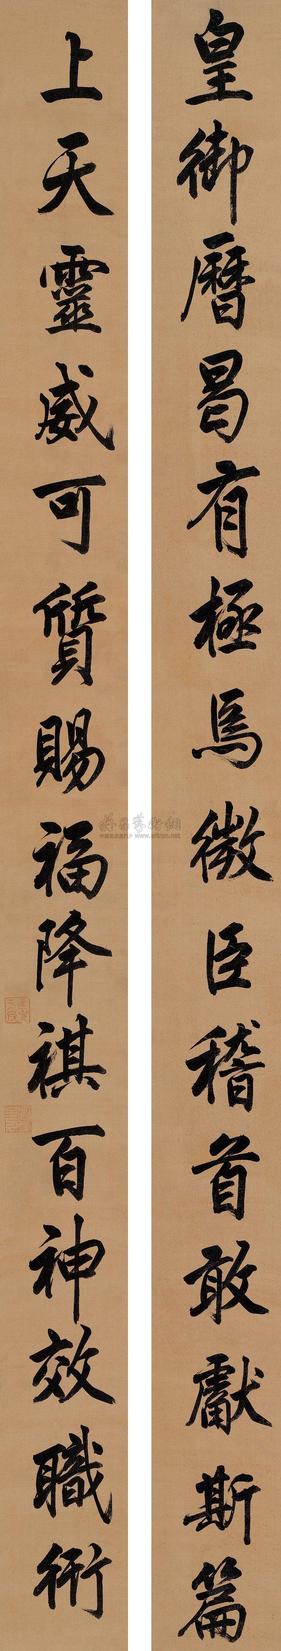 皇御曆曷有極焉微臣稽首敢獻斯篇
上天靈威可質賜福降祺百神效職衍